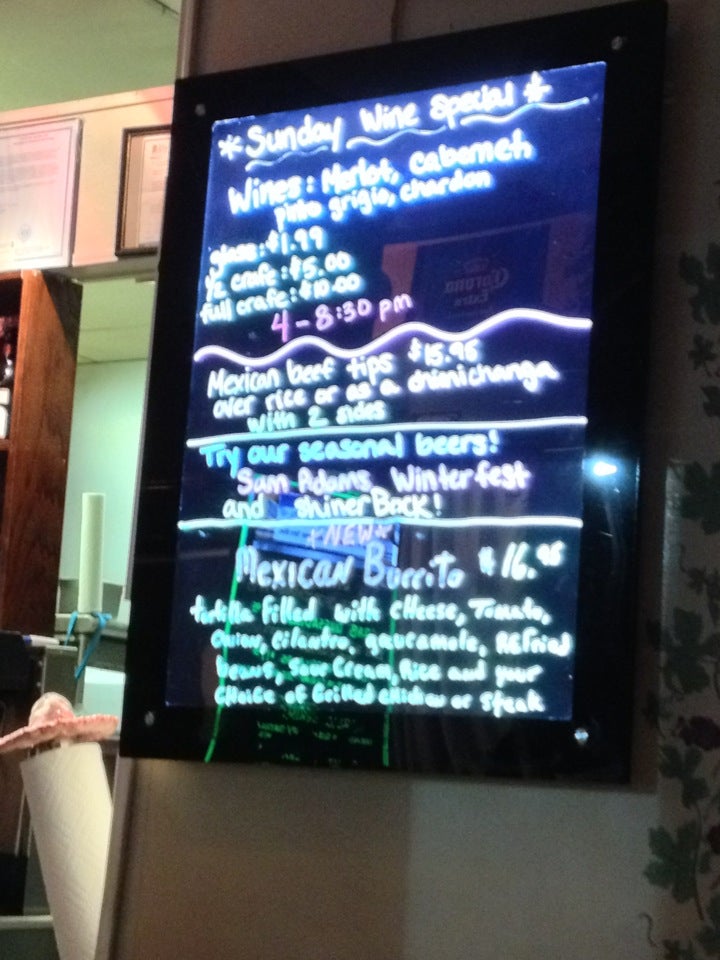 * Sunday Wine Special *
Wines: Merlot, cabernet,
pino grigio, chardon
glass: $1.99
1/2 crafe: $5.00
full crafe: $10.00
4 - 8:30 pm
Mexican beef tips $15.95
over rice or as a chimichanga
with 2 sides
Try our seasonal beers!
Sam Adams Winterfest
and shiner Bock!
*NEW*
Mexican Burrito $16.95
tortilla filled with cheese, Tomato,
Onion, Cilantro, guacamole, Refried
beans, Sour Cream, Rice and your
choice of Grilled chicken or Steak
Corona
Extra